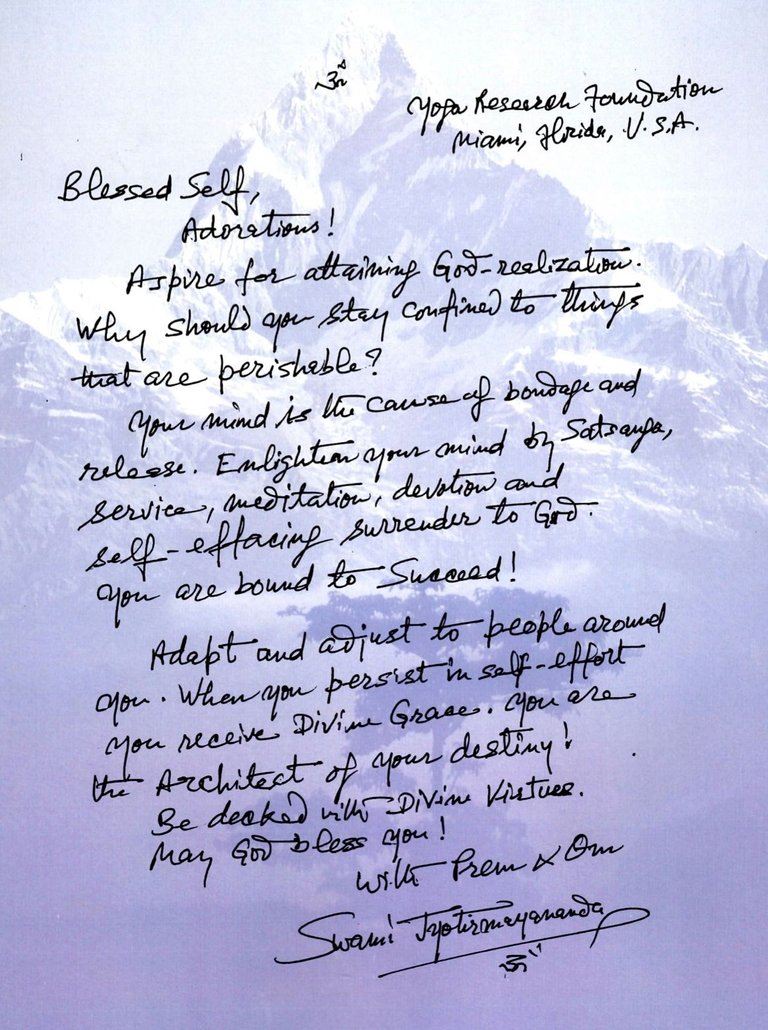 ॐ
Yoga Research Foundation
Miami, Florida, U.S.A.
Blessed Self,
Adorations!
Aspire for attaining God-realization.
Why should you stay confined to things
that are perishable?
Your mind is the cause of bondage and
release. Enlighten your mind by Satsanga,
service, meditation, devotion and
self-effacing surrender to God.
You are bound to Succeed!
Adapt and adjust to people around
you. When you persist in self-effort
you receive Divine Grace. You are
the Architect of your destiny!
Be decked with Divine Virtues.
May God bless you!
With Prem & Om
Swami Jyotirmayananda
ॐ